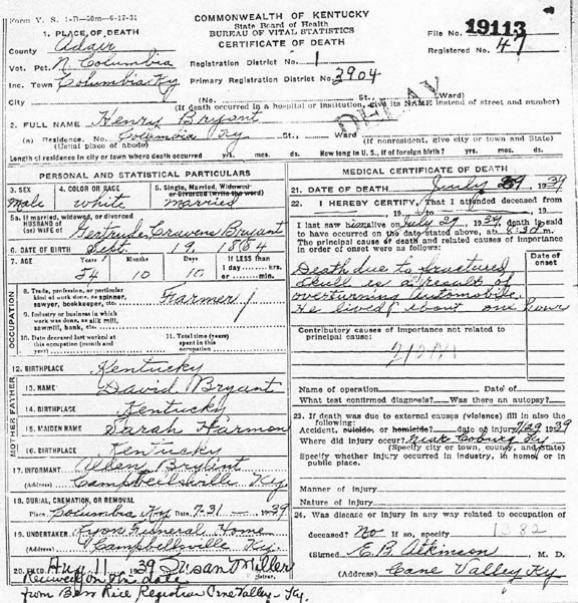 Form V. S. 1-D—50m—6-17-31
COMMONWEALTH OF KENTUCKY
State Board of Health
BUREAU OF VITAL STATISTICS
CERTIFICATE OF DEATH
File No. 19113
Registered No. 47
1. PLACE OF DEATH
County Adair
Vot. Pct. N. Columbia
Registration District No. 1
Inc. Town Columbia Ky
Primary Registration District No. 3904
City (No. St., Ward)
(If death occurred in a hospital or institution, give its NAME instead of street and number)
DELAY
2. FULL NAME Henry Bryant
(a) Residence. No. Columbia Ky St., Ward
(Usual place of abode) (If nonresident, give city or town and State)
Length of residence in city or town where death occurred yrs. mos. ds. How long in U. S., if of foreign birth? yrs. mos. ds.
PERSONAL AND STATISTICAL PARTICULARS
3. SEX male
4. COLOR OR RACE white
5. Single, Married, Widowed or Divorced (write the word) married
5a. If married, widowed, or divorced
HUSBAND of
(or) WIFE of Gertrude Cravens Bryant
6. DATE OF BIRTH Sept. 9, 1864
7. AGE Years Months Days If LESS than
1 day hrs.
or min.
34 10 10
OCCUPATION
8. Trade, profession, or particular
kind of work done, as spinner,
sawyer, bookkeeper, etc. Farmer
9. Industry or business in which
work was done, as silk mill,
sawmill, bank, etc.
10. Date deceased last worked at
this occupation (month and
year)
11. Total time (years)
spent in this
occupation
12. BIRTHPLACE Kentucky
FATHER
13. NAME David Bryant
14. BIRTHPLACE Kentucky
MOTHER
15. MAIDEN NAME Sarah Harmon
16. BIRTHPLACE Kentucky
17. INFORMANT Allen Bryant
(Address) Campbellsville Ky
18. BURIAL, CREMATION, OR REMOVAL
Place Columbia Ky Date 7-31—1939
19. UNDERTAKER Lyon Funeral Home
(Address) Campbellsville Ky.
20. FILED Aug 11 1939 Susan Miller
Registrar.
Received on this date
from Bess Rice Registrar Cane Valley - Ky.
MEDICAL CERTIFICATE OF DEATH
21. DATE OF DEATH July 29, 1939
22. I HEREBY CERTIFY, That I attended deceased from
I last saw him alive on July 29, 1939, death is said
to have occurred on the date stated above, at 8:30 m.
The principal cause of death and related causes of importance
in order of onset were as follows:
Date of
onset
Death due to fractured
skull as a result of
overturning automobile.
He lived about one hour
Contributory causes of importance not related to
principal cause:
Name of operation Date of
What test confirmed diagnosis? Was there an autopsy?
23. If death was due to external causes (violence) fill in also the
following:
Accident, suicide, or homicide? date of injury 7/29 1939
Where did injury occur? Near Coburg Ky
(Specify city or town, county, and state)
Specify whether injury occurred in industry, in home, or in
public place.
Manner of injury
Nature of injury
24. Was disease or injury in any way related to occupation of
deceased? No If so, specify 1382
(Signed) E. B. Atkinson M. D.
(Address) Cane Valley Ky.